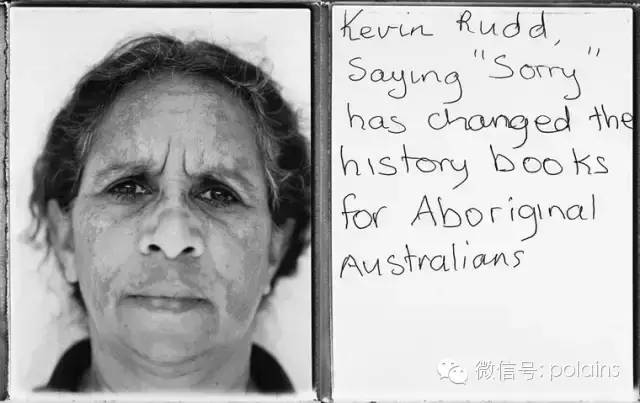 Kevin Rudd,
Saying "Sorry"
has changed the
history books
for Aboriginal
Australians
微信号: polains